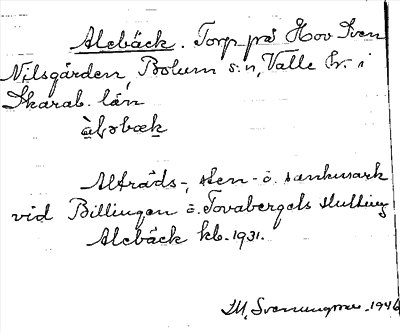 Alebäck. Torp på Hov Sven
Nilsgården, Bolum s:n, Valle hr. i
Skarab. län
àləbæk
Alträds-, sten- o. sankmark
vid Billingen o. Tovabergets sluttning
Alebäck kb. 1931.
M. 1946